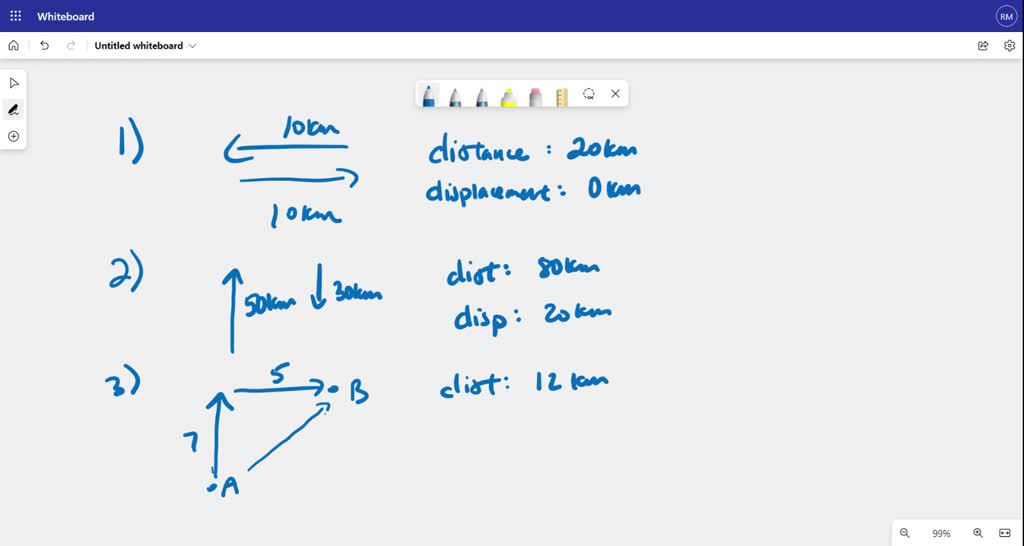 Whiteboard
RM
Untitled whiteboard
1)
10km
10km
distance : 20km
displacement: 0km
2)
50km
30km
dist: 80km
disp: 20km
3)
5
B
7
A
dist: 12km
99%